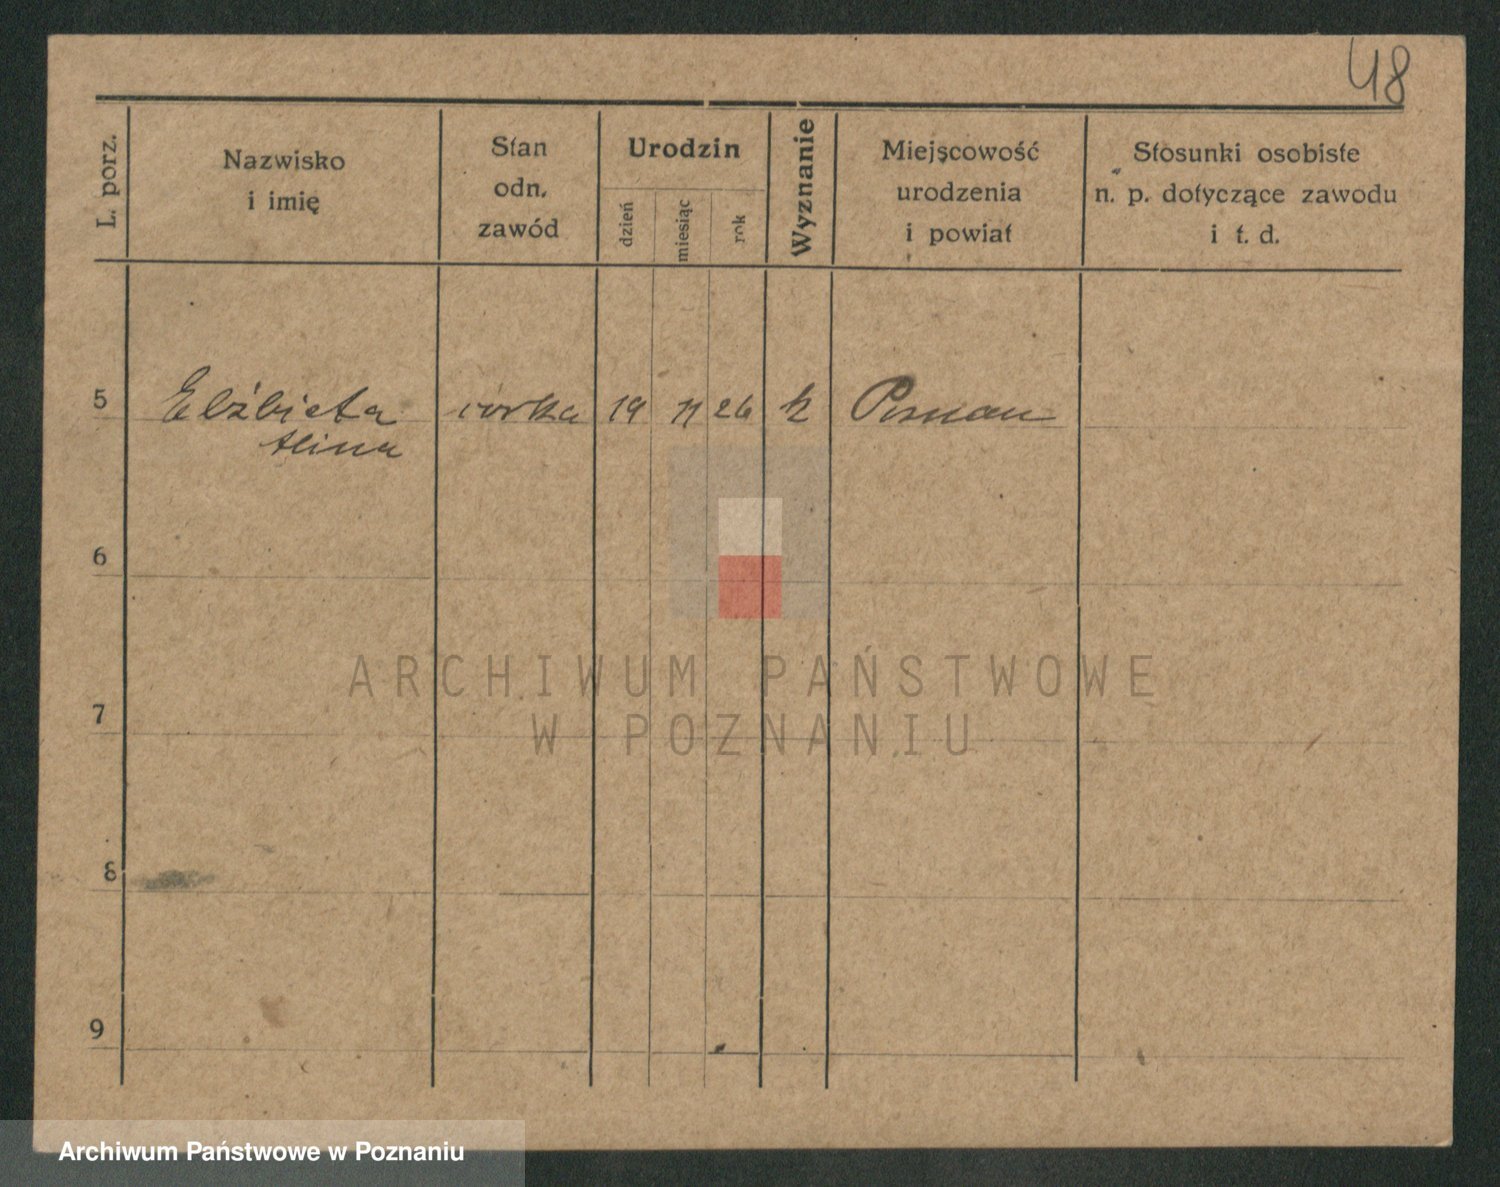 48
L. porz.
Nazwisko
i imię
Stan
odn.
zawód
Urodzin
dzień
miesiąc
rok
Wyznanie
Miejscowość
urodzenia
i powiat
Stosunki osobiste
n. p. dotyczące zawodu
i t. d.
5 Elżbieta córka 19 11 26 k Poznań
Alina
6
7
8
9
ARCHIWUM PAŃSTWOWE
W POZNANIU
Archiwum Państwowe w Poznaniu